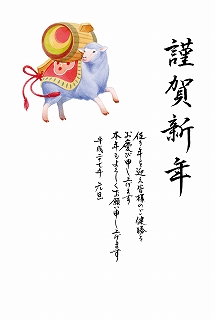 謹賀新年
佳き年を迎え皆様のご健勝を
お慶び申し上げます
本年もよろしくお願い申し上げます
平成二十七年 元旦